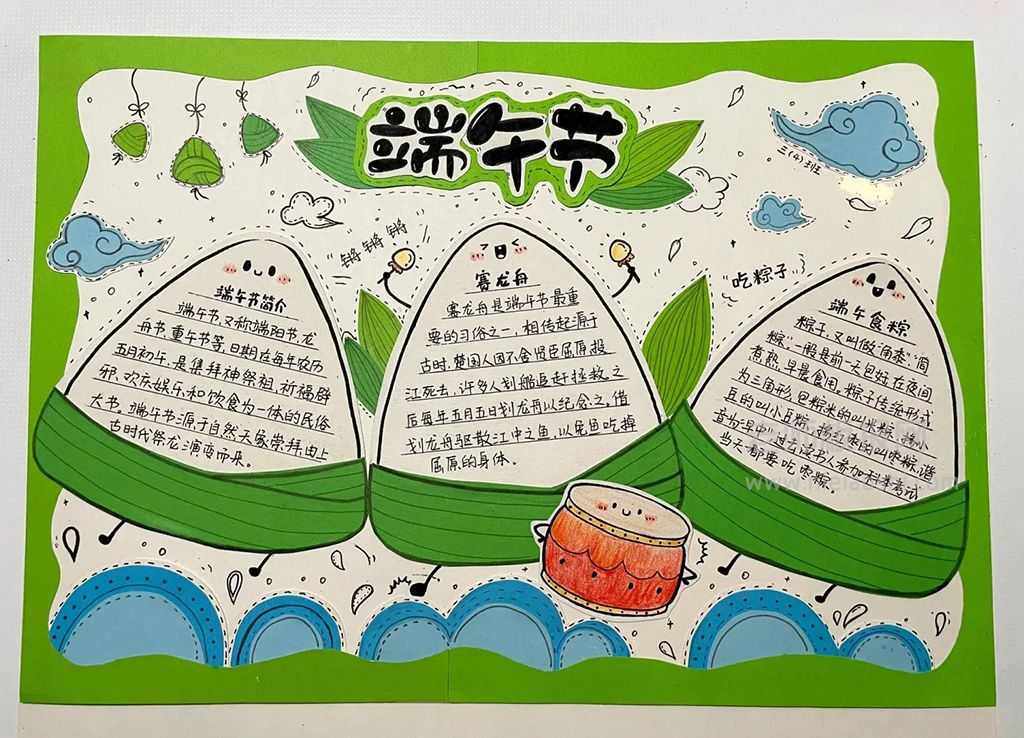 端午节
三(4)班
锵 锵 锵
吃粽子
端午节简介
端午节,又称端阳节,龙
舟节,重午节等,日期在每年农历
五月初午,是集拜神祭祖,祈福辟
邪、欢庆娱乐和饮食为一体的民俗
大节。端午节源于自然天象崇拜,由上
古时代祭龙演变而来。
赛龙舟
赛龙舟是端午节最重
要的习俗之一,相传起源于
古时,楚国人因不舍贤臣屈原投
江死去,许多人划船追赶拯救。之
后每年五月五日划龙舟以纪念之。借
划龙舟驱散江中之鱼,以免鱼吃掉
屈原的身体。
端午食粽
粽子,又叫做"角黍""筒
粽",一般是前一天包好,在夜间
煮熟,早晨食用。粽子传统形式
为三角形,包粽米的叫米粽,掺小
豆的叫小豆粽,掺红枣的叫枣粽,谐
音为"早中",过去读书人参加科举考试
当天都要吃枣粽。